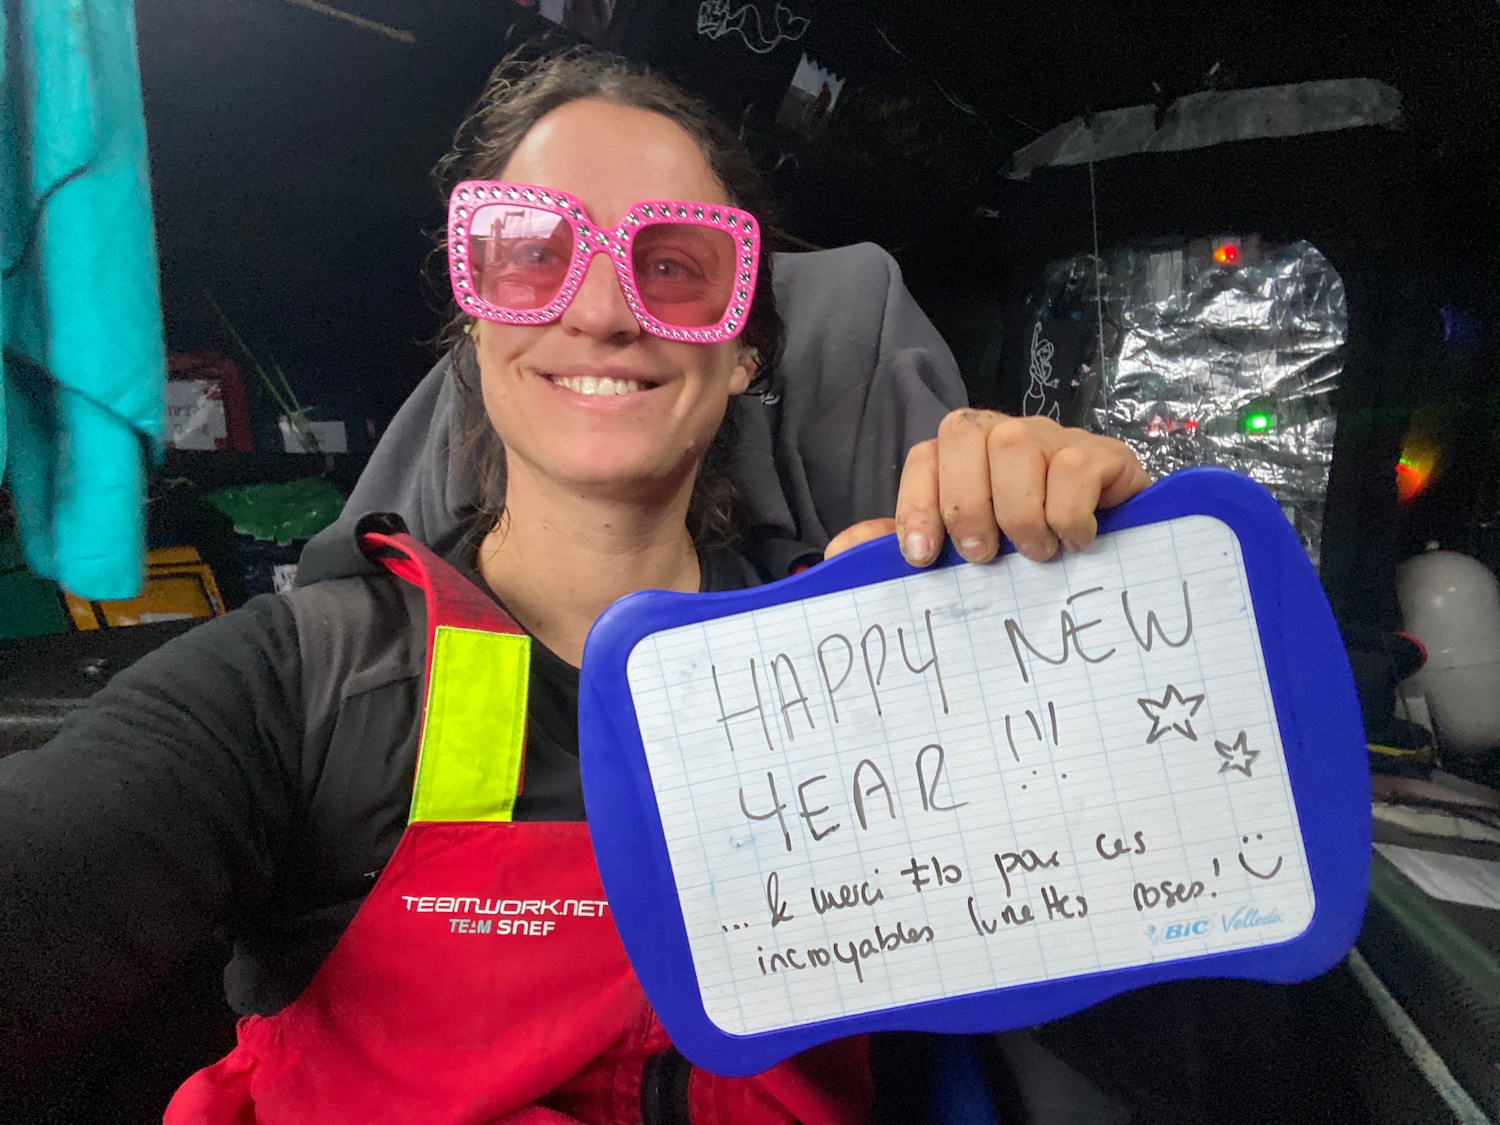 HAPPY NEW
YEAR !!!
... & merci Flo pour ces
incroyables lunettes roses!
BIC Velleda
TEAMWORK.NET
TEAM SNEF